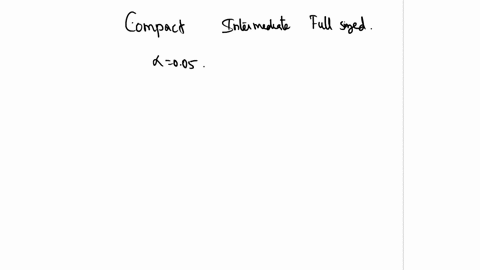 Compact Intermediate Full sized.
α=0.05.